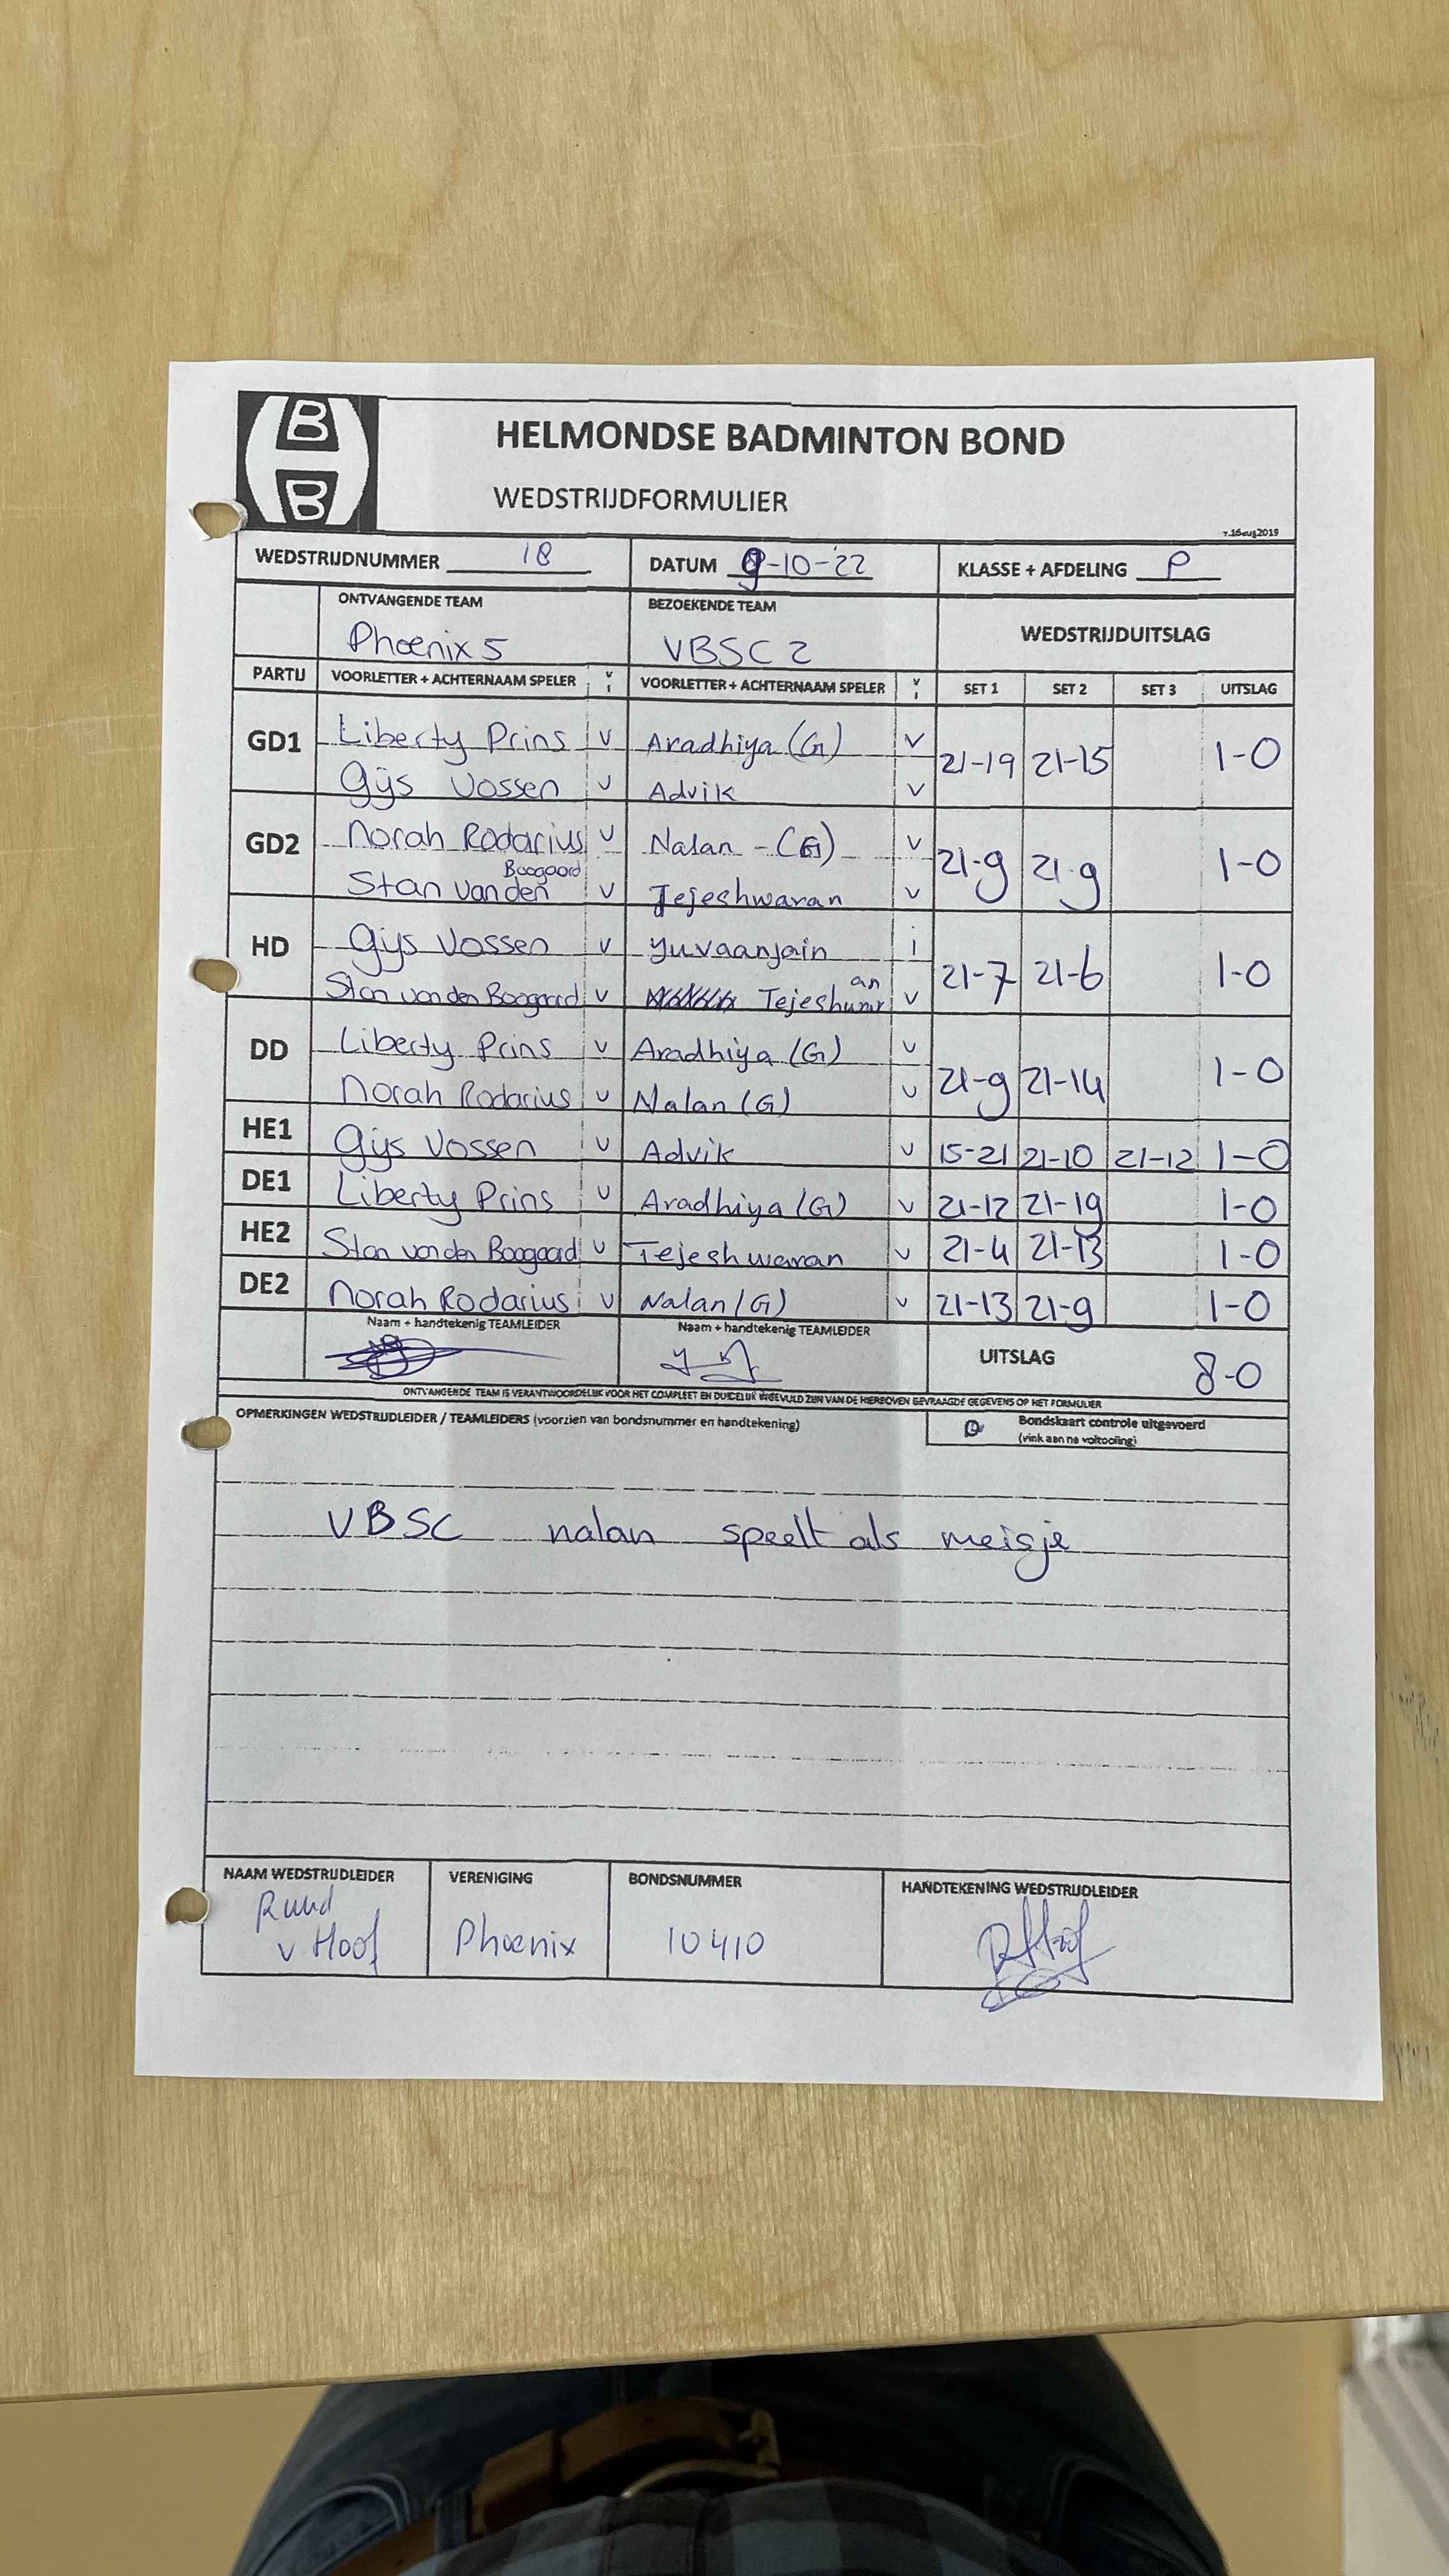 B
B
HELMONDSE BADMINTON BOND
WEDSTRIJDFORMULIER
WEDSTRIJDNUMMER 18 DATUM 9-10-'22 KLASSE + AFDELING P
ONTVANGENDE TEAM BEZOEKENDE TEAM WEDSTRIJDUITSLAG
Phoenix 5 VBSC 2
PARTIJ VOORLETTER + ACHTERNAAM SPELER V I VOORLETTER + ACHTERNAAM SPELER V I SET 1 SET 2 SET 3 UITSLAG
GD1 Liberty Prins V Aradhiya (G) V 21-19 21-15 1-0
Gijs Vossen V Advik V
GD2 Norah Rodarius V Nalan - (G) V 21-9 21-9 1-0
Stan van den Boogaard V Tejeshwaran V
HD Gijs Vossen V Yuvaanjain i 21-7 21-6 1-0
Stan van den Boogaard V V
DD Liberty Prins V Aradhiya (G) V 21-9 21-14 1-0
Norah Rodarius V Nalan (G) V
HE1 Gijs Vossen V Advik V 15-21 21-10 21-12 1-0
DE1 Liberty Prins V Aradhiya (G) V 21-12 21-19 1-0
HE2 Stan van den Boogaard V Tejeshwaran V 21-4 21-13 1-0
DE2 Norah Rodarius V Nalan (G) V 21-13 21-9 1-0
Naam + handtekenig TEAMLEIDER Naam + handtekenig TEAMLEIDER
UITSLAG 8-0
ONTVANGENDE TEAM IS VERANTWOORDELIJK VOOR HET COMPLEET EN DUIDELIJK INGEVULD ZIJN VAN DE HIERBOVEN GEVRAAGDE GEGEVENS OP HET FORMULIER
OPMERKINGEN WEDSTRIJDLEIDER / TEAMLEIDERS (voorzien van bondsnummer en handtekening) Bondskaart controle uitgevoerd
(vink aan na voltooiing)
VBSC nalan speelt als meisje
NAAM WEDSTRIJDLEIDER VERENIGING BONDSNUMMER HANDTEKENING WEDSTRIJDLEIDER
Ruud
v Hoof Phoenix 10410